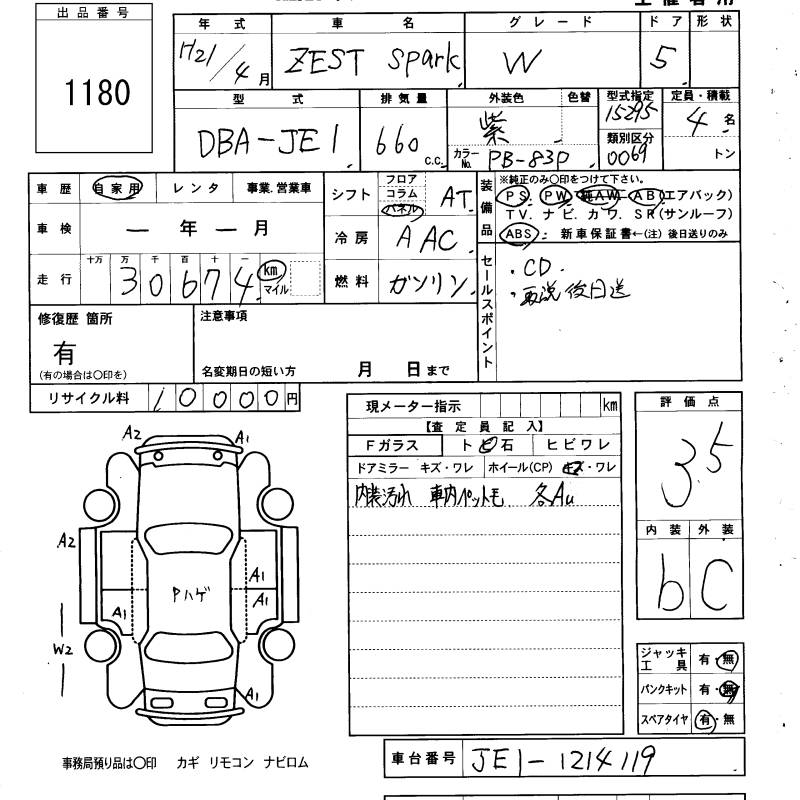 出品番号
1180
年式 車名 グレード ドア 形状
H21/4月 ZEST Spark W 5
型式 排気量 外装色 色替 型式指定 定員・積載
DBA-JE1 660 c.c. 紫 15295 4 名
類別区分
カラーNo. PB-83P 0069 トン
車歴 自家用 レンタ 事業.営業車
シフト フロア コラム パネル AT
装備品
※純正のみ〇印をつけて下さい。
PS. PW. 純AW. AB(エアバック)
TV. ナビ. カワ. SR(サンルーフ)
ABS. 新車保証書←(注)後日送りのみ
車検 ー 年 ー 月
冷房 AAC
走行 十万 万 千 百 十 一
30674 km マイル
燃料 ガソリン
セールスポイント
・CD.
・取説後日送
修復歴 箇所
有
(有の場合は〇印を)
注意事項
名変期日の短い方 月 日まで
リサイクル料 10000円
現メーター指示 km
【査定員記入】
Fガラス トビ石 ヒビワレ
ドアミラー キズ・ワレ ホイール(CP) キズ・ワレ
内装汚れ 車内ペット毛 各AU
評価点
3.5
内装 外装
b C
A2 A1
A2
A1
A1
A1
Pハゲ
W2
A1
ジャッキ工具 有・無
パンクキット 有・無
スペアタイヤ 有・無
事務局預り品は〇印 カギ リモコン ナビロム
車台番号 JE1-1214119